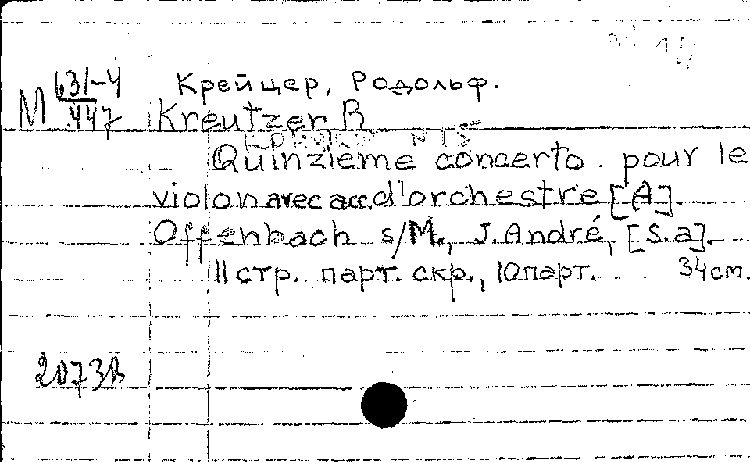 № 14
М 631-4
447
Крейцер, Родольф.
Kreutzer R
Концерт N15
Quinzieme concerto. pour le
violon avec acc. d'orchestre [A].
Offenbach s/M., J.André, [S.a].
11 стр. парт. скр., 10 парт. 34 см.
2073в